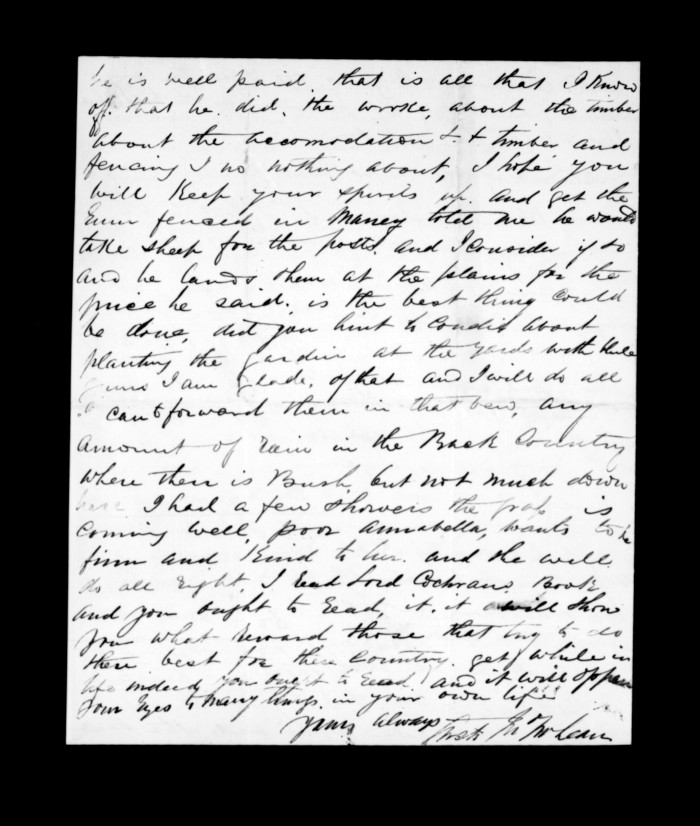 he is well paid. that is all that I Know
off. that he did, the worke, about the timber
about the accomodation & + timber and
fencing I no nothing about, I hope you
will Keep your spirits up. and get the
fenced in Maney told me he would
take sheep for the posts. and I consider if so
and he lands them at the plains for the
price he said. is the best thing could
be done, did you hint to Condie about
planting the gardin at the yards with blue
gums I am glade. of that and I will do all
I can to forward them in that vew, any
amount of rain in the Back Country
where then is Bush but not much down
here I had a few showers the grass is
coming well, poor Annabella, wants to be
firm and Kind to her. and she will
do all right. I read Lord Cochrans Book
and you ought to read, it, it will show
you what reward those that try to do
there best for there Country. get, while in
life indeed you ought to read and it will oppen
your Eyes to many things in your own life
yours always
McLean